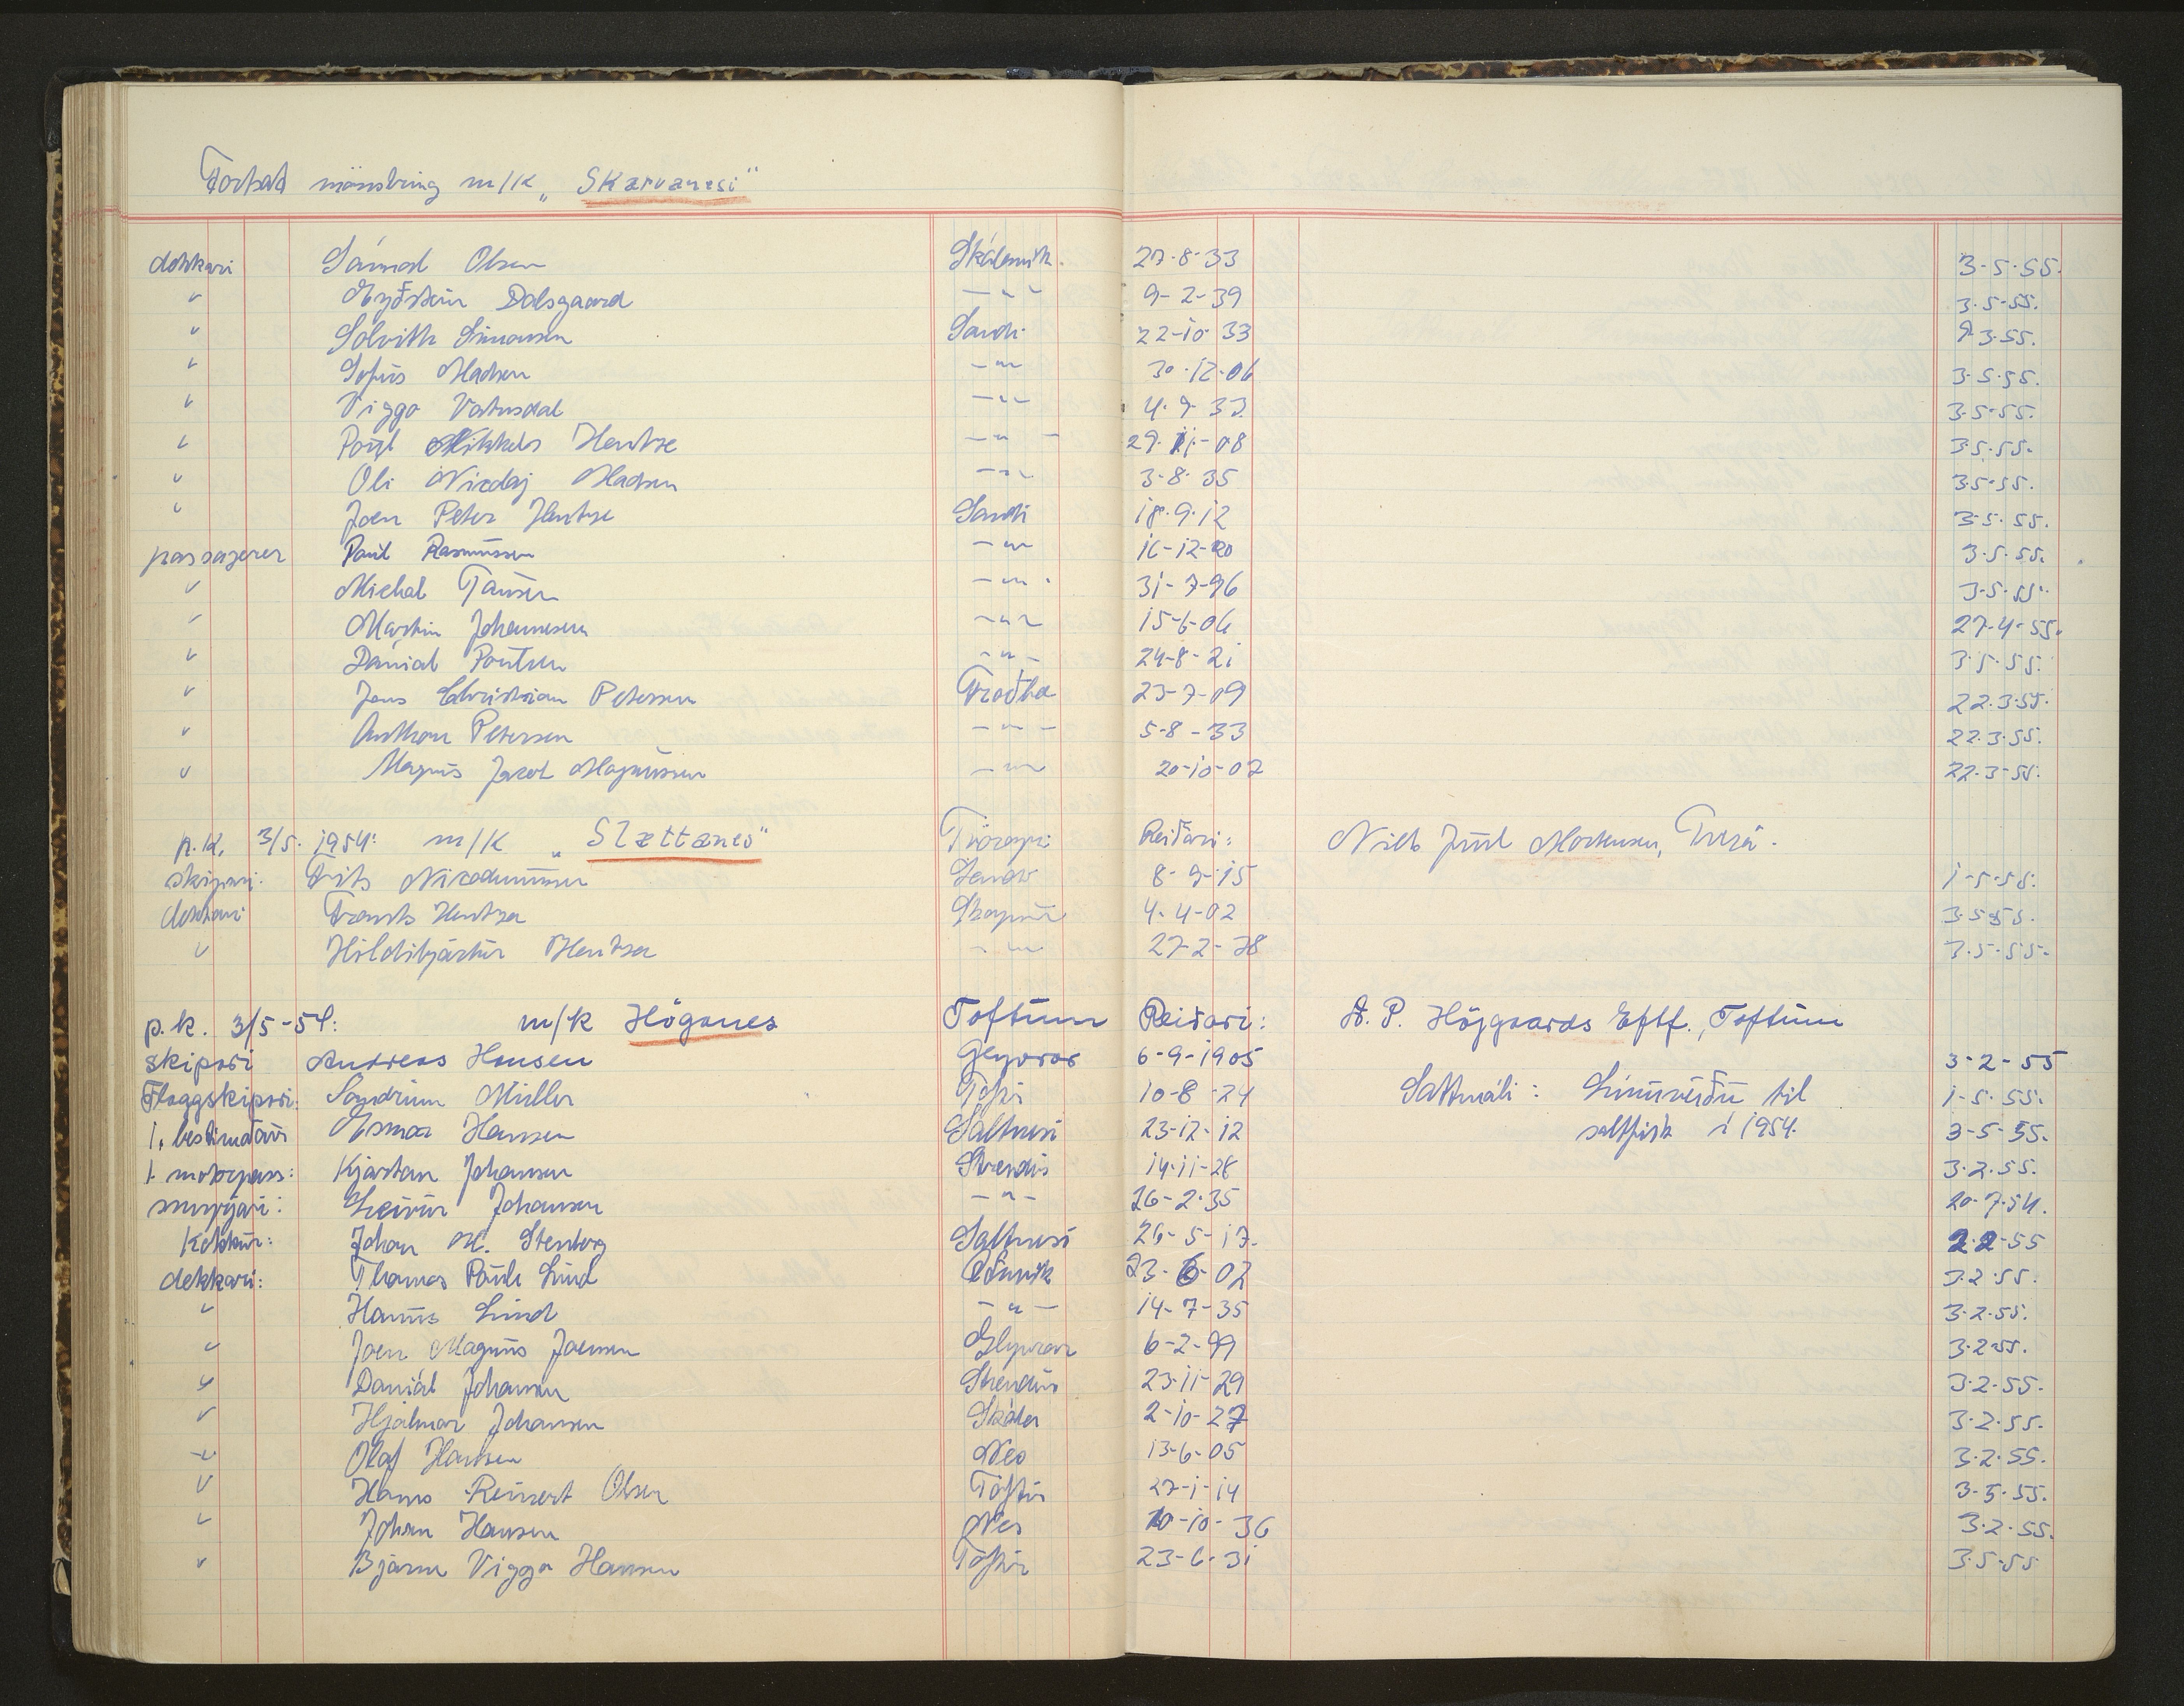 Fortsat mönstring m/k „Skarvanesi"
dekkari Sámal Olsen Skálavík. 27-8-33 3-5-55.
" Eyðstein Dalsgaard — " — 9-2-39 3-5-55.
" Sölvith Simonsen Sandi 22-10-33 3-55.
" Sofus Madsen — " — 30-12-06 3-5-55.
" Viggo Vatnsdal — " — 4-9-33 3-5-55.
" Poul Mikkels Hentze — " — 29-11-08 3-5-55.
" Oli Nicolaj Madsen — " — 3-8-35 3-5-55.
" Joen Peter Hentze Sandi 18-9-12 3-5-55.
passagerer Paul Rasmussen — " — 16-12-20 3-5-55.
" Michal Tausen — " — 31-7-96 3-5-55.
" Martin Johannesen — " — 15-6-06 27-4-55.
" Dánial Poulsen — " — 24-8-21 3-5-55.
" Jens Christian Petersen 23-7-09 22-3-55.
" Anthon Petersen — " — 5-8-33 22-3-55.
" Magnus Jacob Magnussen — " — 20-10-07 22-3-55.
p.k. 3/5. 1954: m/k „Slettanes" Tvöroyri Reiðari: Niels Juul Mortensen, Tvrá.
skipari: Frits Nicodemussen Sandi 8-9-15 1-5-55.
dekkari Frants Hentze Skopun 4-4-02 3-5-55.
" Hildibjartur Hentze — " — 27-2-38 3-5-55.
p.k. 3/5-54: m/k Höganes Toftum Reiðari: A. P. Höjgaards Eftf., Toftum
skipari Andreas Hansen Glyvrar 6-9-1905 3-2-55
Flaggskipari: Sandrim Müller Toftir 10-8-24 Sáttmáli: Línuveiðu til 1-5-55.
1. bestimaður Esmar Hansen Saltnesi 23-12-12 saltfisk í 1954. 3-5-55.
1. motorpass: Kjartan Johansen Strendur 14-11-28 3-2-55.
smyrjari: Leivur Johansen — " — 26-2-35 20-7-54.
Kokkur: Johan M. Stenberg Saltnesi 26-5-17. 2-2-55
dekkari: Thomas Pauli Lund Elduvík 23-6-02 3-2-55.
" Hanus Lund — " — 14-7-35 3-2-55.
" Joen Magnus Joensen Glyvrar 6-2-99 3-2-55.
" Daniál Johansen Strendur 23-11-29 3-2-55.
" Hjálmar Johansen Skála 2-10-27 3-2-55.
" Olaf Hansen Nes 13-6-05 3-2-55.
" Hans Reinert Olsen Toftir 27-1-14 3-5-55.
" Johan Hansen Nes 10-10-36 3-2-55.
" Bjarni Viggo Hansen Toftir 23-6-31 3-5-55